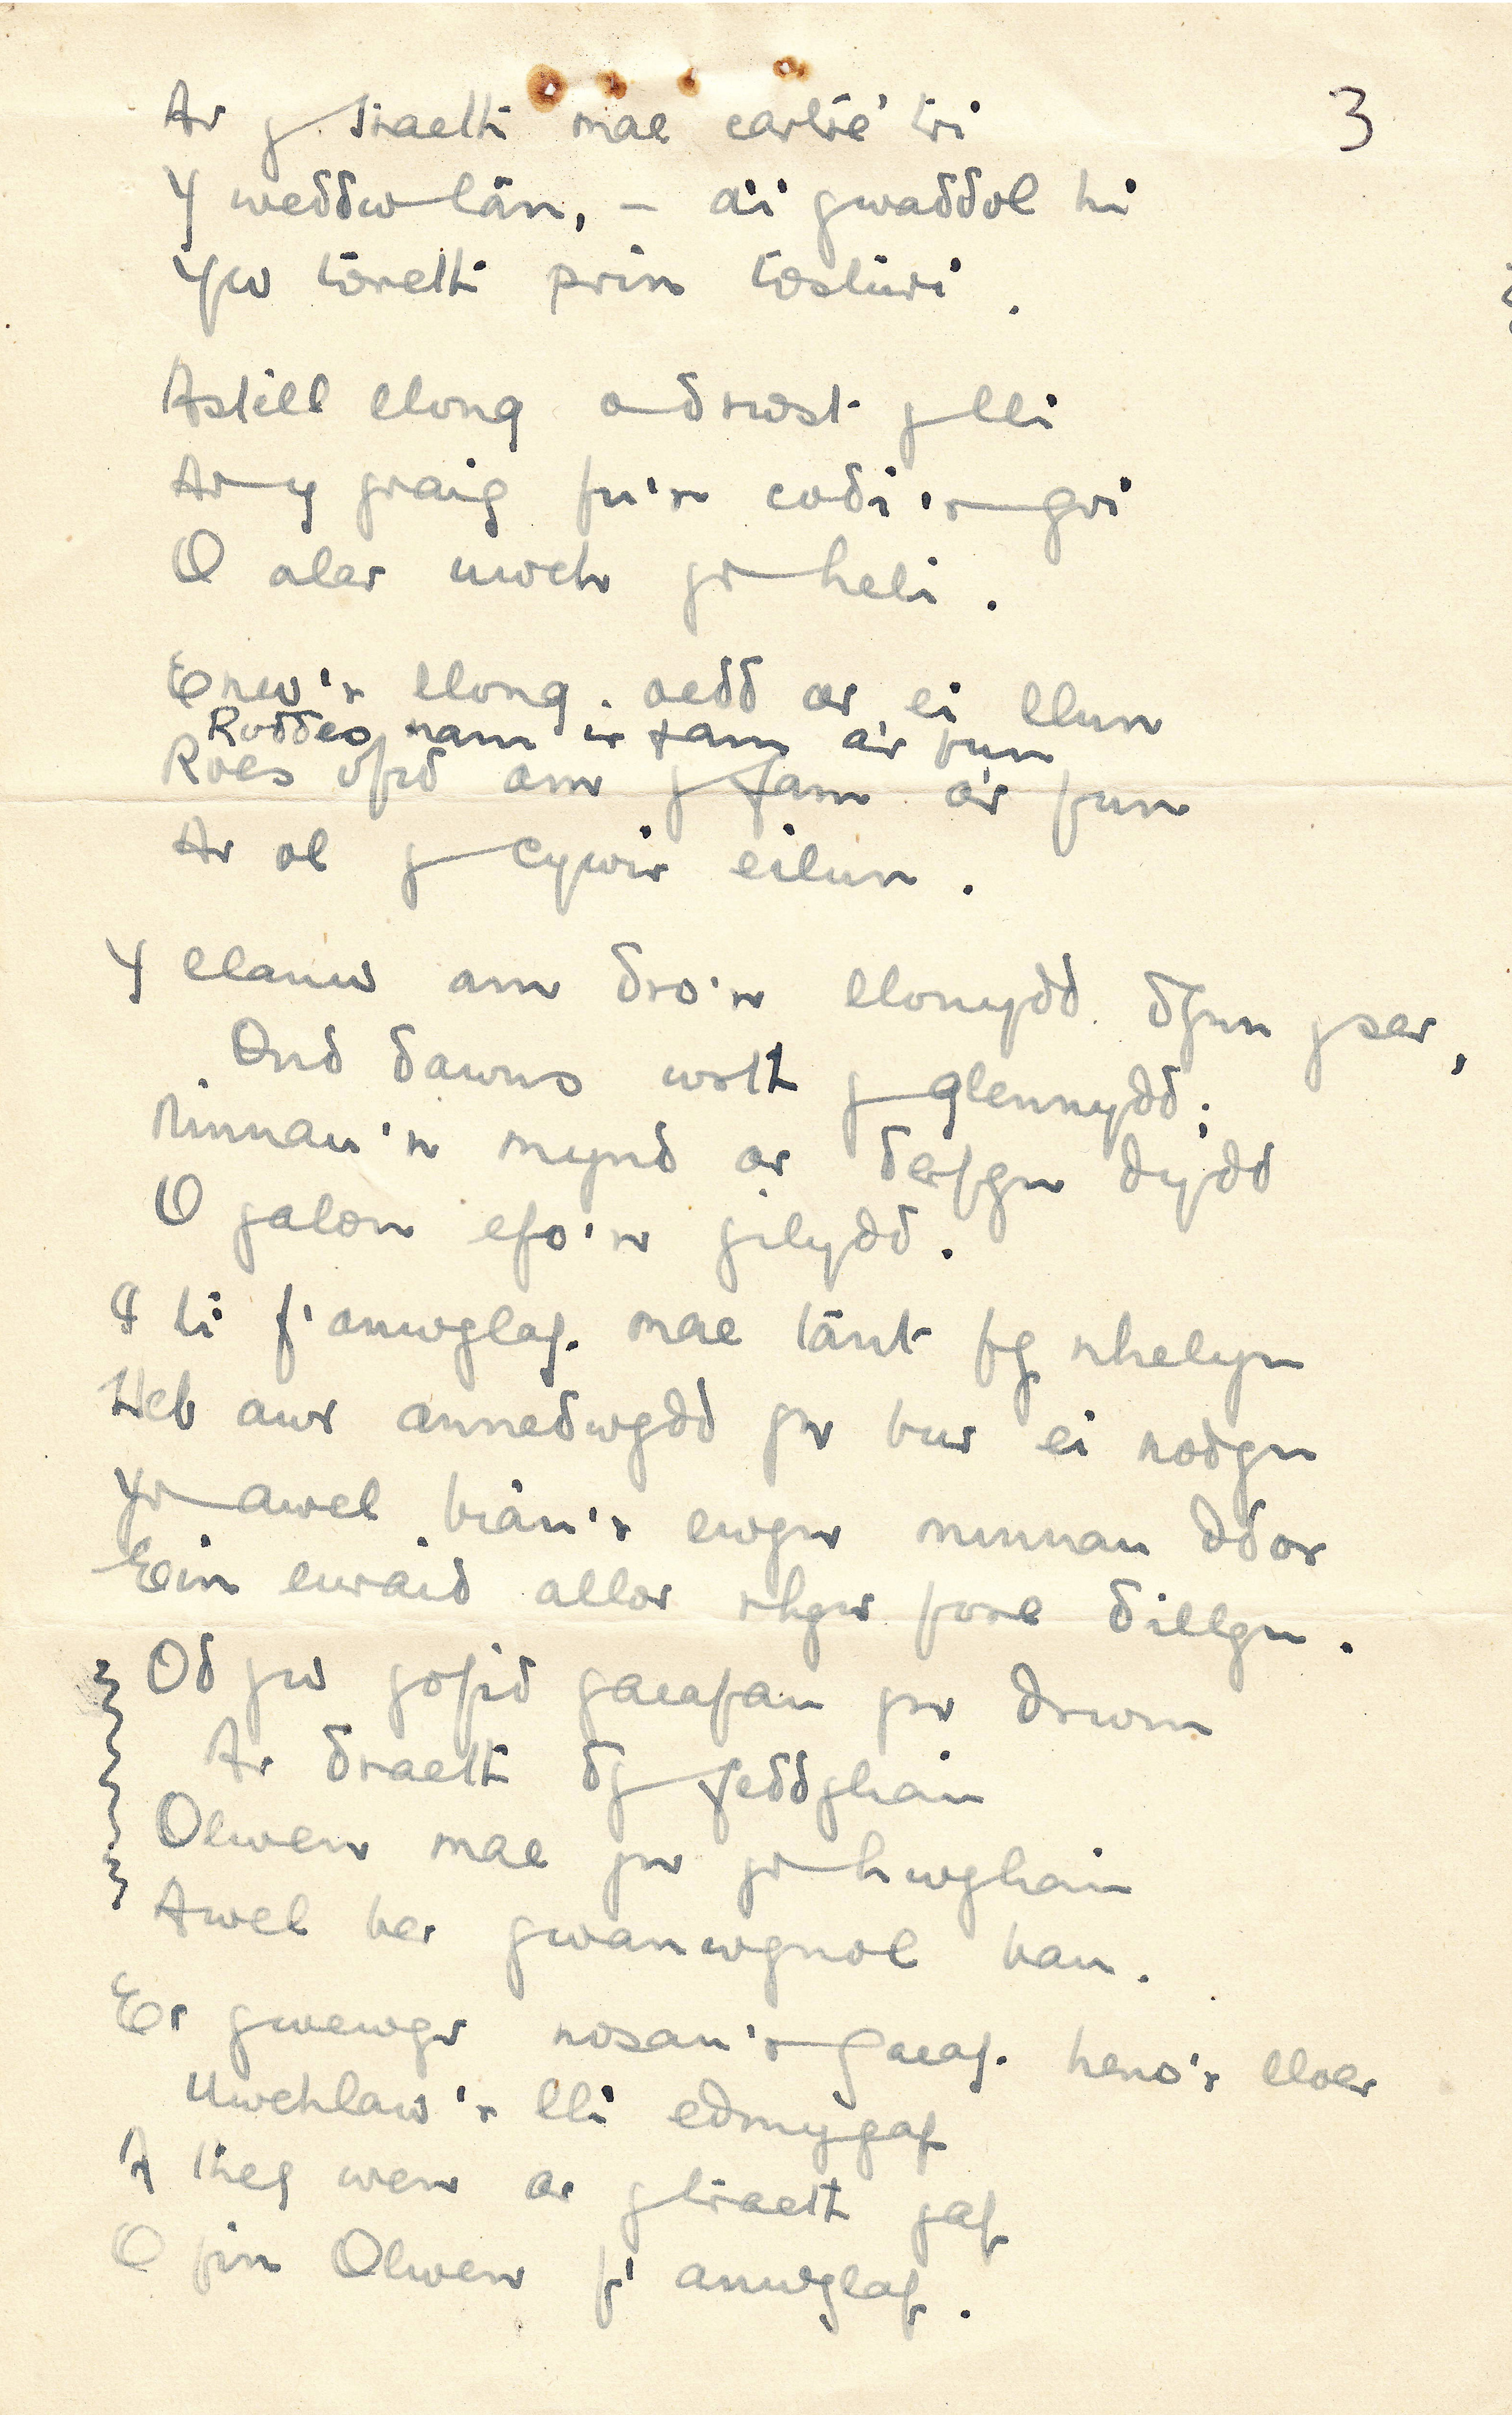 3
Ar y traeth mae cartre' tri
Y weddw lân, – a'i gwaddol hi
Yw toreth prin tosturi.
Astell llong o drwst y lli
Ar y graig fu'n codi'r gri
O alar uwch yr heli.
Enw'r llong oedd ar ei llun
Roddes nam i'r fam a'r fun
Roes ofid am y fam a'r fun
Ar ol y cywir eilun.
Y llanw am dro'n llonydd dyun y ser,
Ond dawns wrth y glennydd;
Ninnau'n mynd ar derfyn dydd
O galon efo'n gilydd.
I ti f'anwylaf mae tânt fy nhelyn
Heb awr annedwydd yn bur ei nodyn
Yr awel biau'r ewyn ninnau ddor
Ein euraid allor rhyw fore dillyn.
Od yw gofid gaeafau yn drwm
Ar draeth dy feddyliau
Olwen mae yn yr hwyliau
Awel ber gwanwynol bau.
Er gwewyr nosau'r Gaeaf heno'r lloer
Uwchlaw'r lli edmygaf
A theg wen ar y traeth gaf
O fin Olwen f'anwylaf.